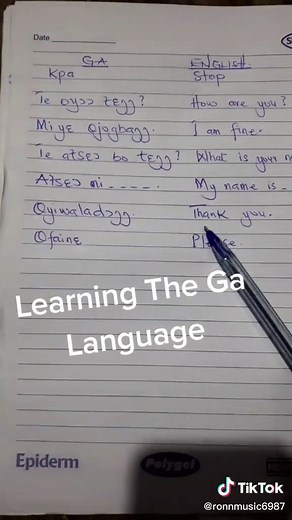 Date
GA ENGLISH
Kpa Stop
Te oyɔɔ teŋŋ? How are you?
Mi yɛ ojogbaŋŋ. I am fine.
Te atsɛɔ bo teŋŋ? What is your n
Atsɛɔ mi _ _ _ _ _. My name is _
Oyiwaladɔŋŋ. Thank you.
Ofainɛ Please.
Learning The Ga
Language
Epiderm Polygel
TikTok
@ronnmusic6987